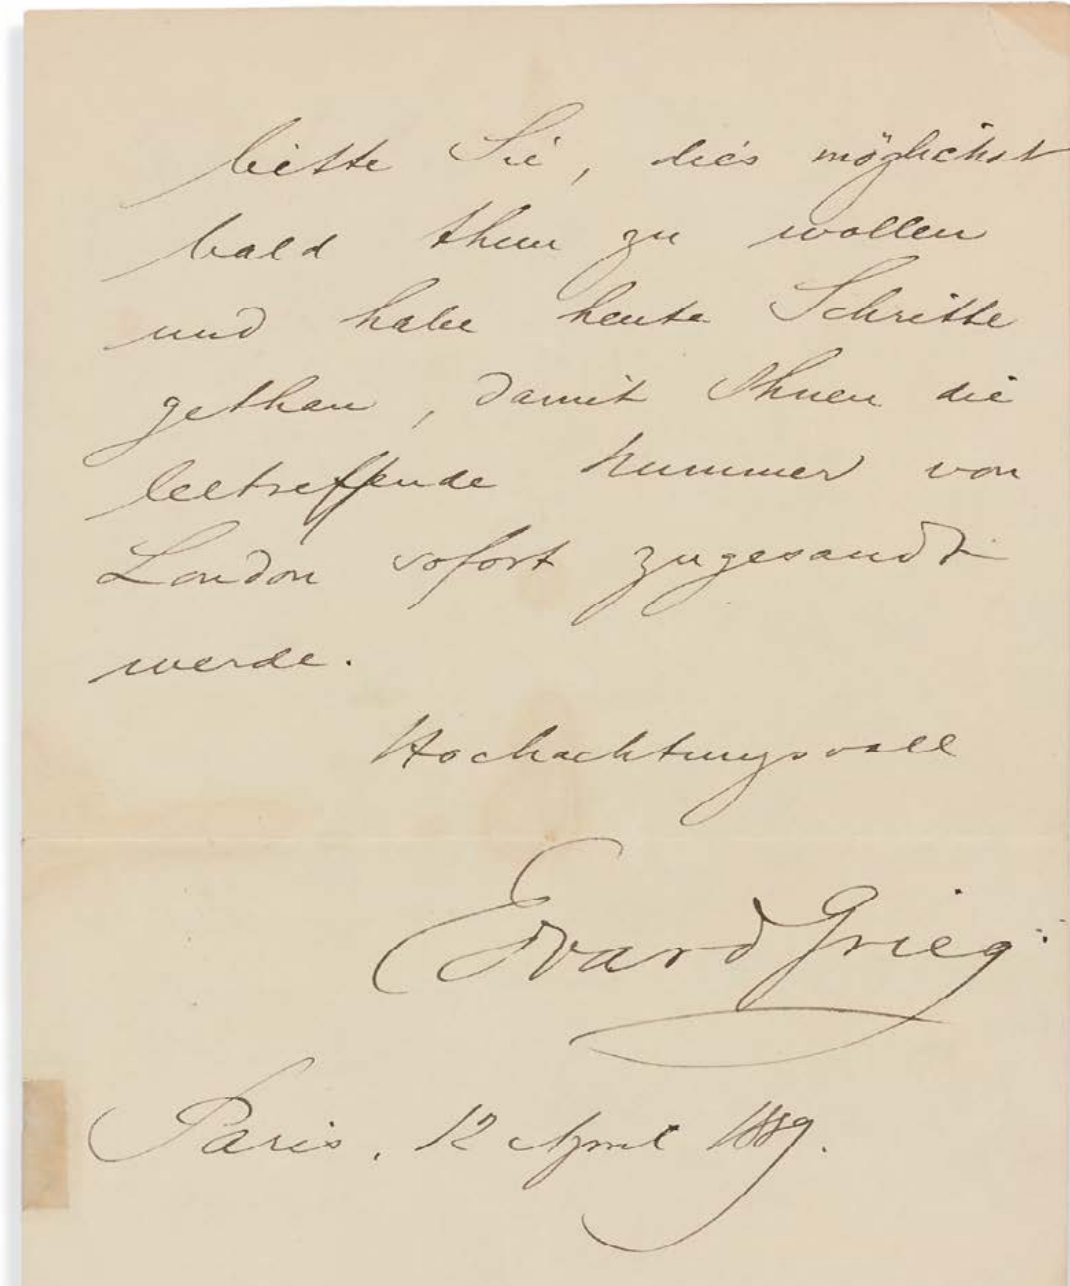 bitte Sie, dies möglichst
bald thun zu wollen
und habe heute Schritte
gethan, damit Ihnen die
betreffende Nummer von
London sofort zugesandt
werde.
Hochachtungsvoll
Edvard Grieg.
Paris, 12 April 1889.